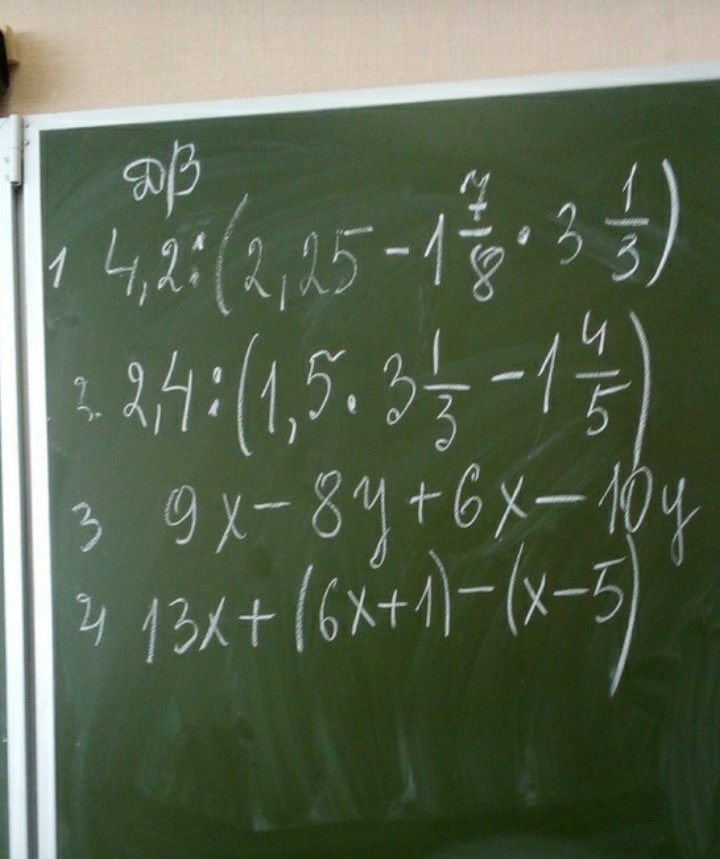 ДВ
1 4,2:(2,25 - 1 7/8 · 3 1/3)
2. 2,4:(1,5 · 3 1/3 - 1 4/5)
3 9x - 8y + 6x - 10y
4 13x + (6x+1) - (x-5)